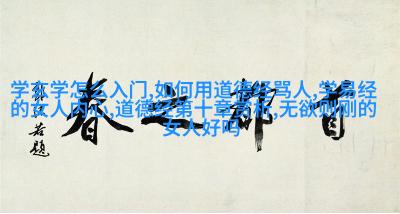 学玄学怎么入门,如何用道德经骂人,学易经
的女人内心,道德经第十章赏析,无欲则刚的
女人好吗
首都之春
郭沫若题